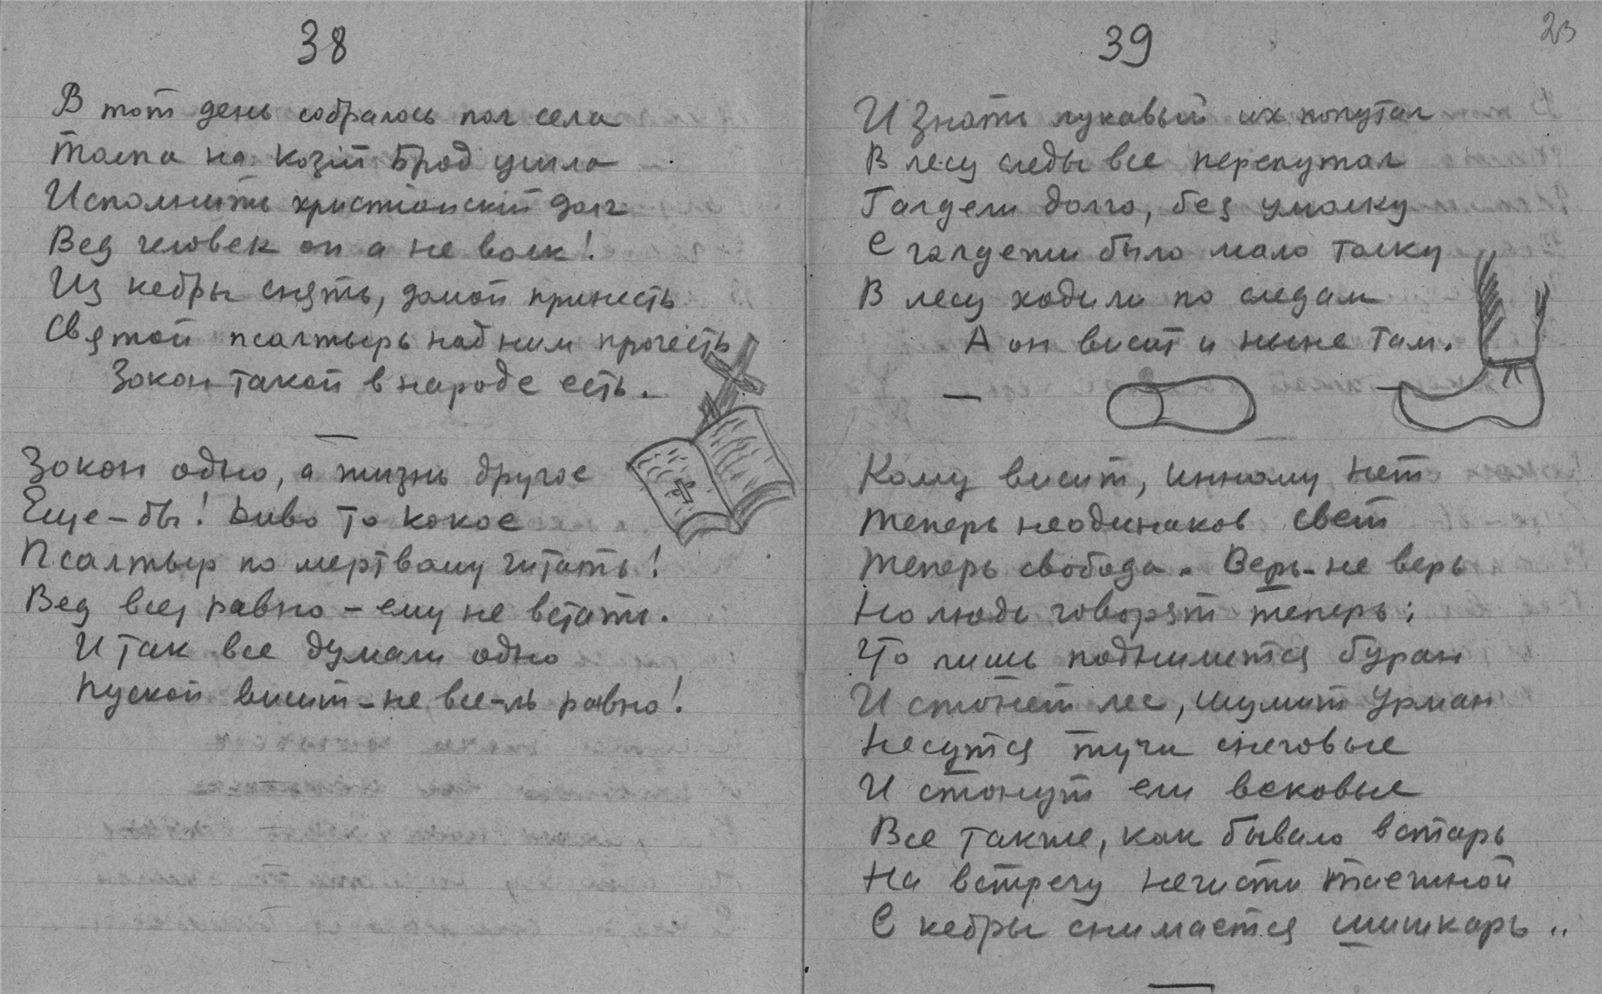 38
В тот день собралось пол села
Толпа на Козiй Брод ушла
Исполнить христiонскiй долг
Вед человек он а не волк!
Из кедры снять, домой принесть
Святой псалтырь над ним прочесть
Закон такой в народе есть.
Закон одно, а жизнь другое
Еще-бы! Диво то какое
Псалтыр по мертвому читать!
Вед всеj равно – ему не встать.
И так все думали одно
Пускай висит – не все-ль равно!
39
23
И Знать лукавый их попутал
В лесу следы все перепутал
Галдели долго, без умолку
С галдежи было мало толку
В лесу ходили по следам
А он висит и ныне там.
Кому висит, инному нет
Теперь неодинаков свет
Теперь свобода. Верь-не верь
Но люди говорят теперь:
Что лишь поднимется буран
И стонет лес, шумит Урман
Несутся тучи снеговые
И стонут ели вековые
Все также, как бывало встарь
На встречу нечисти таежной
С кедры снимается шишкарь ..